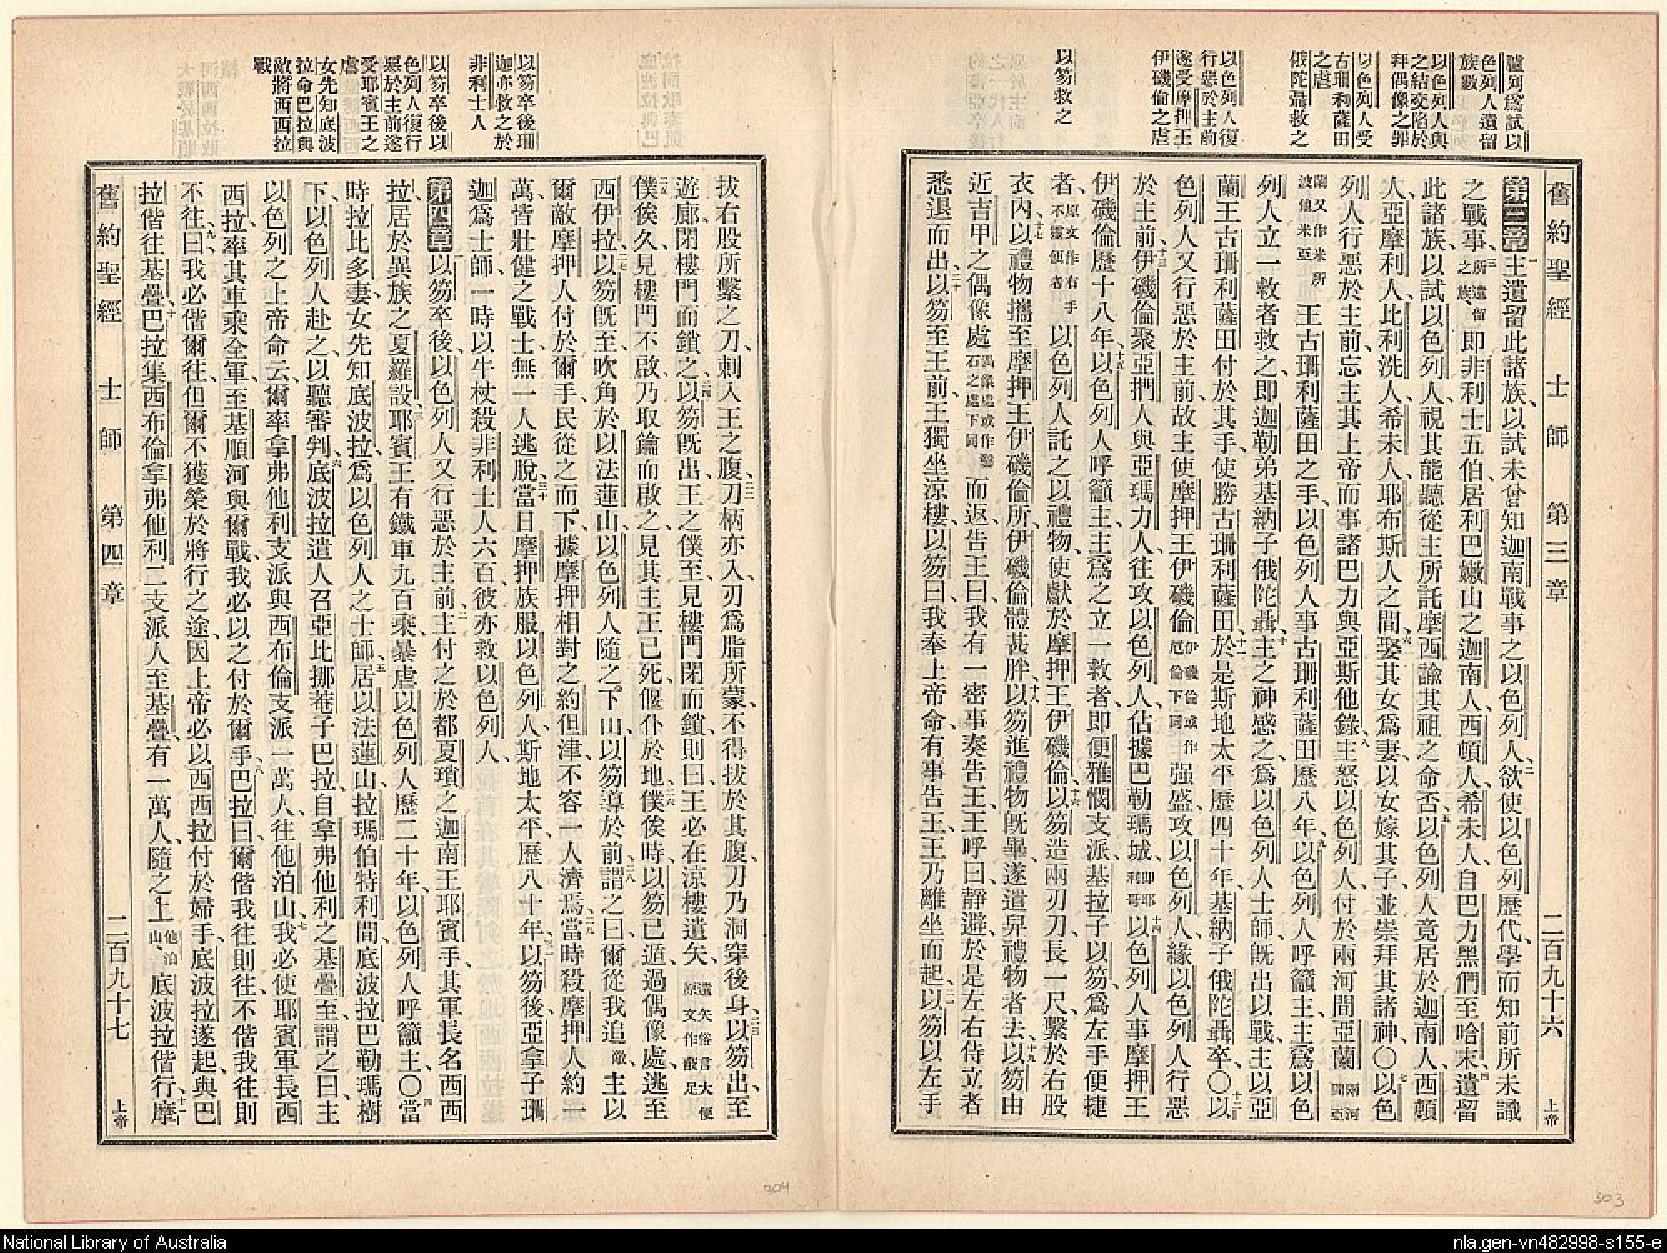 舊約聖經 士師 第三章 二百九十六 上帝
臚列爲試以
色列人遺留
族數
以色列人與
之結交陷於
拜偶像之罪
以色列人受
古珊利薩田
之虐
俄陀聶救之
以色列人復
行惡於主前
遂受摩押王
伊磯倫之虐
以笏救之
第三章主遺留此諸族、以試未曾知迦南戰事之以色列人、二欲使以色列歷代、學而知前所未識
之戰事、三所遺留之族、卽非利士五伯、居利巴嫩山之迦南人、西頓人、希未人、自巴力黑們至哈末、四遺留
此諸族、以試以色列人、視其能聽從主所託摩西諭其祖之命否、五以色列人竟居於迦南人、西頓
人、亞摩利人、比利洗人、希未人、耶布斯人之間、六娶其女爲妻、以女嫁其子、並崇拜其諸神、〇七以色
列人行惡於主前、忘主其上帝、而事諸巴力與亞斯他錄、八主怒以色列人、付於兩河間亞蘭兩河間亞
蘭又作米所波儋米亞王古珊利薩田之手、以色列人事古珊利薩田歷八年、九以色列人呼籲主、主爲以色
列人立一救者救之、卽迦勒弟基納子俄陀聶、十主之神感之、爲以色列人士師、旣出以戰、主以亞
蘭王古珊利薩田付於其手、使勝古珊利薩田、十一於是斯地太平、歷四十年、基納子俄陀聶卒、〇十二以
色列人又行惡於主前、故主使摩押王伊磯倫伊磯倫或作厄倫下同强盛、攻以色列人、緣以色列人行惡
於主前、十三伊磯倫聚亞捫人與亞瑪力人、往攻以色列人、佔據巴勒瑪城、卽耶利哥十四以色列人事摩押王
伊磯倫歷十八年、十五以色列人呼籲主、主爲之立一救者、卽便雅憫支派基拉子以笏、爲左手便捷
者、原文作右手不靈便者以色列人託之以禮物、使獻於摩押王伊磯倫、十六以笏造兩刃刀、長一尺、繫於右股
衣內、十七以禮物攜至摩押王伊磯倫所、伊磯倫體甚胖、十八以笏進禮物旣畢、遂遣舁禮物者去、十九以笏由
近吉甲之偶像處偶像處或作鑿石之處下同而返、告王曰、我有一密事奏告王、王呼曰、靜避、於是左右侍立者
悉退而出、二十以笏至王前、王獨坐涼樓、以笏曰、我奉上帝命、有事告王、王乃離坐而起、二一以笏以左手
以笏卒後珊
迦亦救之於
非利士人
以笏卒後以
色列人復行
惡於主前遂
受耶賓王之
虐
女先知底波
拉命巴拉與
敵將西西拉
戰
拔右股所繫之刀、刺入王之腹、二二刀柄亦入、刃爲脂所蒙、不得拔於其腹、刀乃洞穿後身、二三以笏出、至
遊廊、閉樓門而鎖之、二四以笏旣出、王之僕至、見樓門閉而鎖、則曰、王必在涼樓遺矢、遺矢俗言大便原文作蔽足
二五僕俟久、見樓門不啟、乃取鑰而啟之、見其主王已死、偃仆於地、二六僕俟時、以笏已遁、過偶像處、逃至
西伊拉、二七以笏旣至、吹角於以法蓮山、以色列人隨之下山、以笏導於前、二八謂之曰、爾從我追敵、主以
爾敵摩押人付於爾手、民從之而下、據摩押相對之約但津、不容一人濟焉、二九當時殺摩押人約一
萬、皆壯健之戰士、無一人逃脫、三十當日摩押族服以色列人、斯地太平、歷八十年、三一以笏後、亞拿子珊
迦爲士師、一時以牛杖殺非利士人六百、彼亦救以色列人、
第四章一以笏卒後、以色列人又行惡於主前、二主付之於都夏瑣之迦南王耶賓手、其軍長名西西
拉、居於異族之夏羅設、三耶賓王有鐵車九百乘、暴虐以色列人歷二十年、以色列人呼籲主、〇四當
時拉比多妻、女先知底波拉、爲以色列人之士師、五居以法蓮山、拉瑪伯特利間、底波拉巴勒瑪樹
下、以色列人赴之、以聽審判、六底波拉遣人召亞比挪菴子巴拉、自拿弗他利之基疊至、謂之曰、主
以色列之上帝命云、爾率拿弗他利支派與西布倫支派一萬人、往他泊山、七我必使耶賓軍長西
西拉、率其車乘全軍、至基順河與爾戰、我必以之付於爾手、八巴拉曰、爾偕我往則往、不偕我往則
不往、九曰、我必偕爾往、但爾不獲榮於將行之途、因上帝必以西西拉付於婦手、底波拉遂起、與巴
拉偕往基疊、十巴拉集西布倫拿弗他利二支派人至基疊、有一萬人、隨之上他泊山底波拉偕行、十一摩
舊約聖經 士師 第四章 二百九十七 上帝
304
303
National Library of Australia
nla.gen-vn482998-s155-e